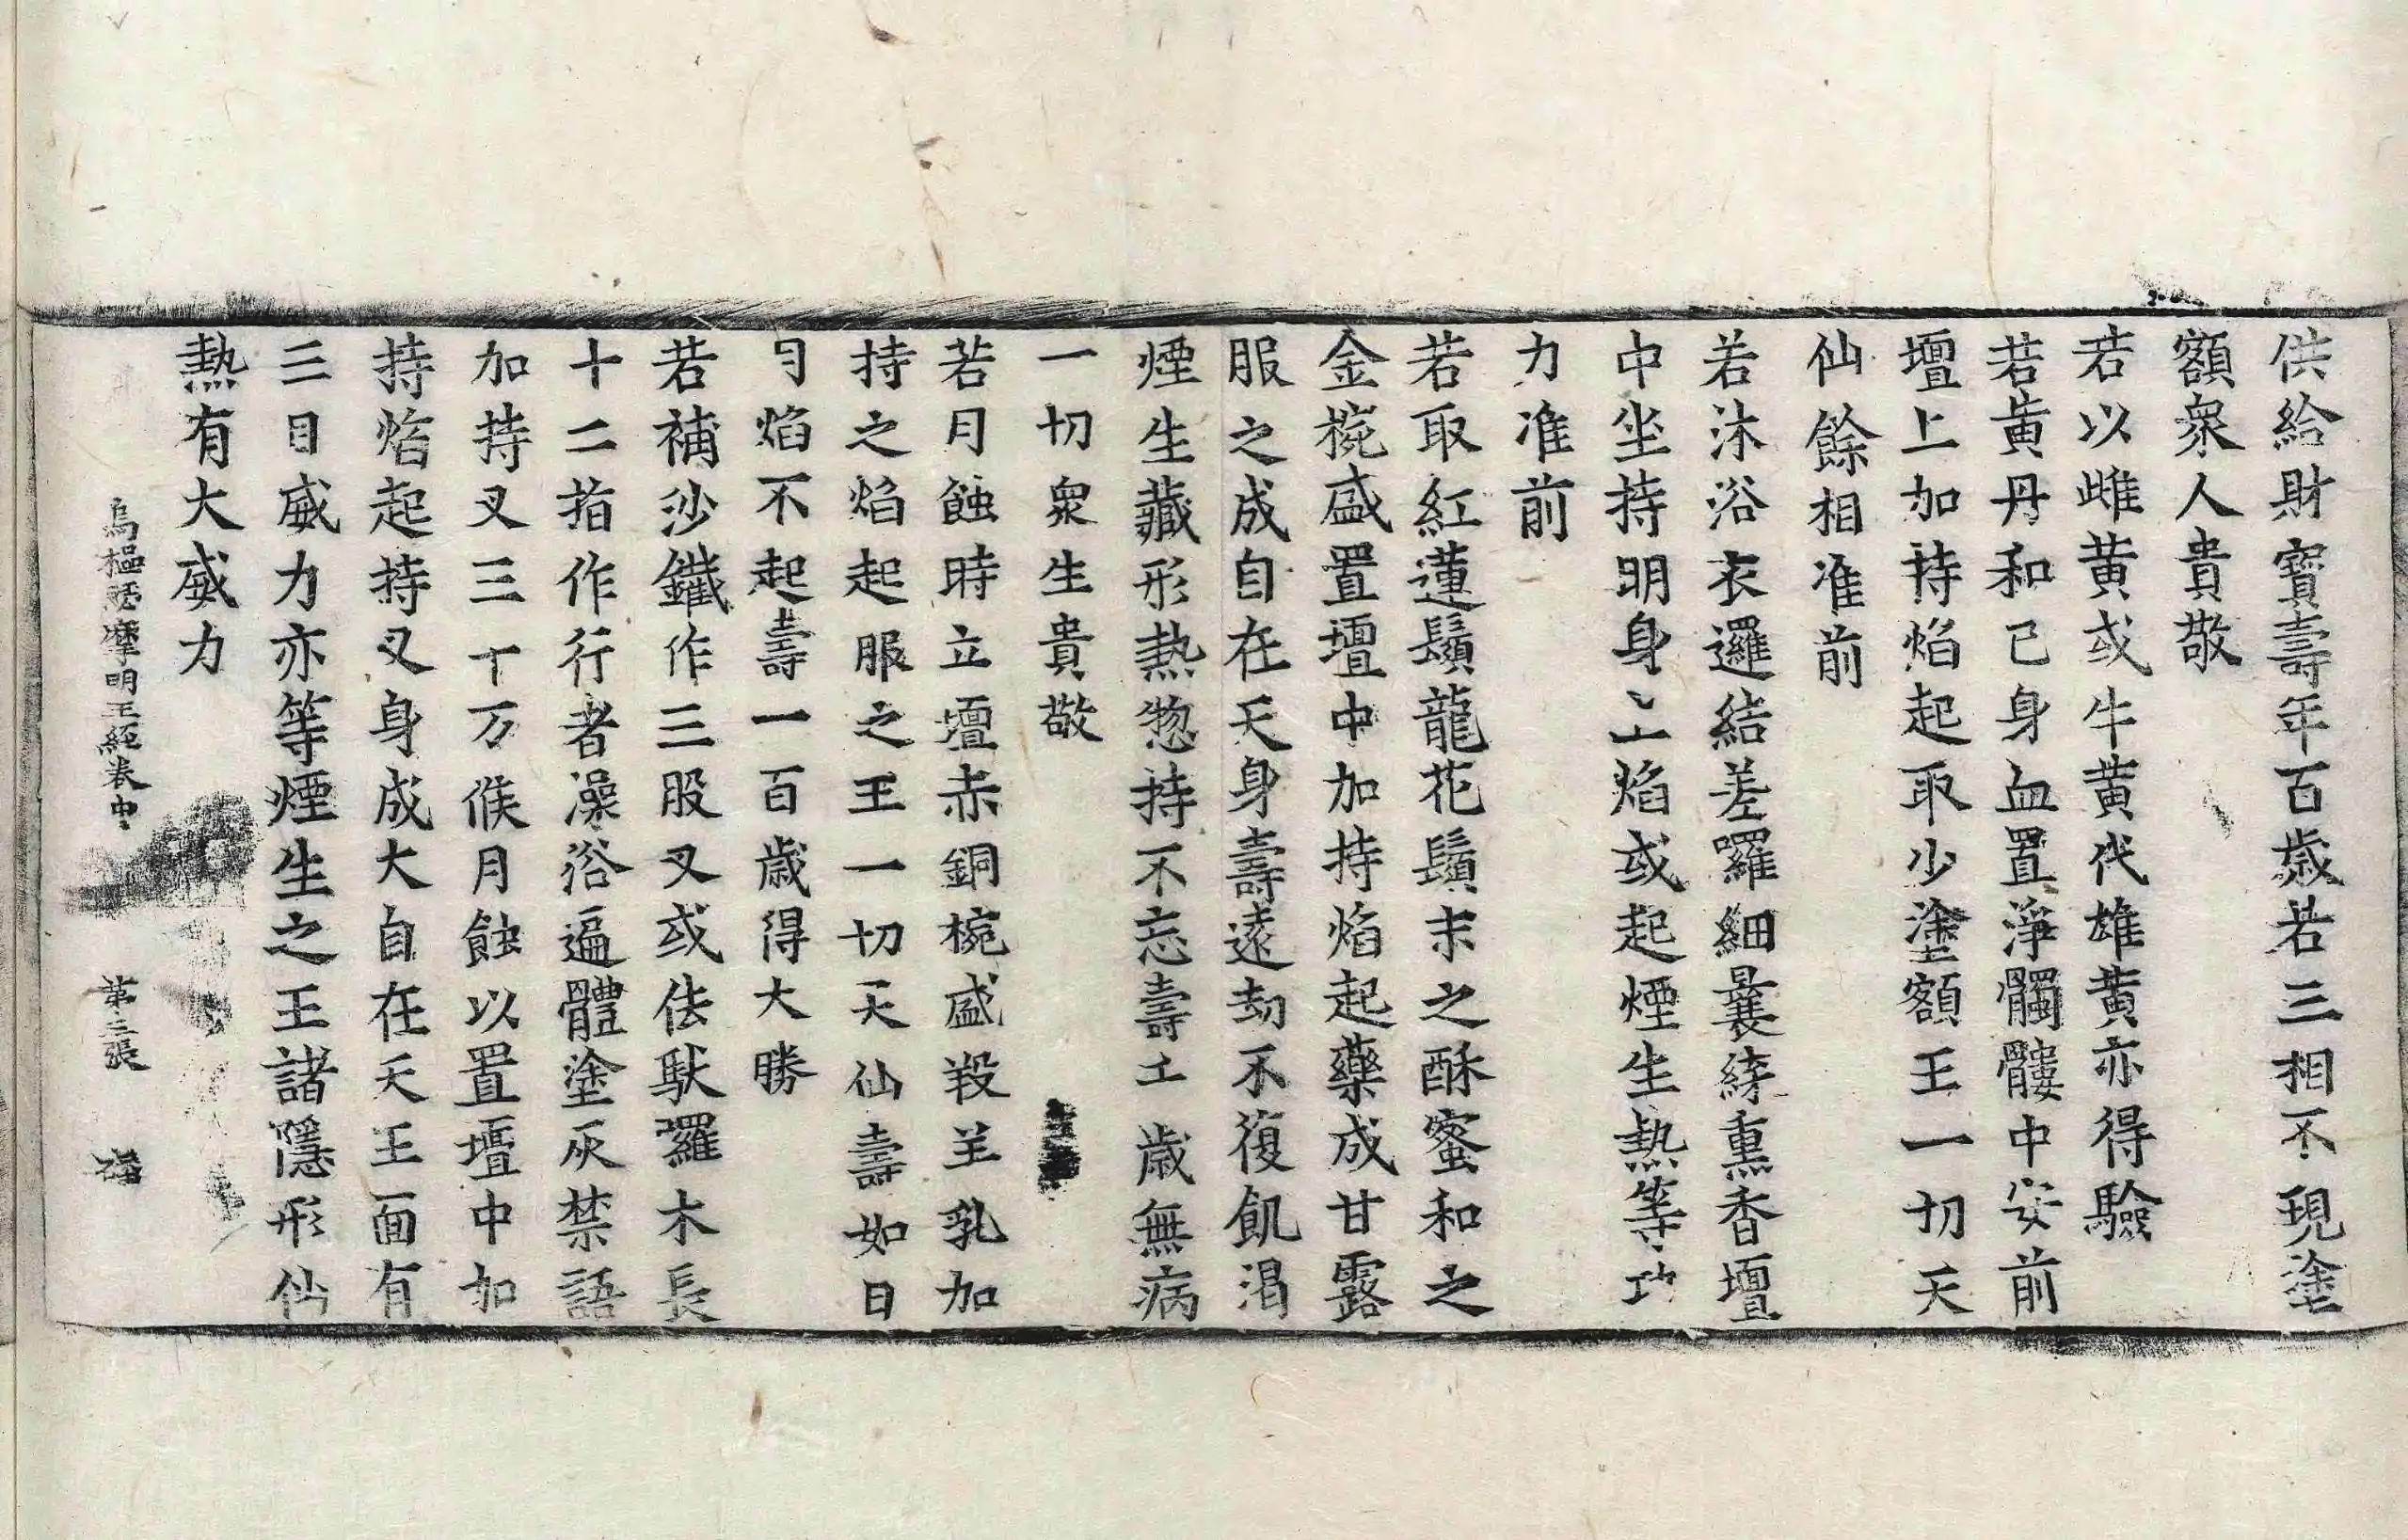 供給財寶壽年百歲若三相不現塗
額衆人貴敬
若以雌黃或牛黃代雄黃亦得驗
若黃丹和己身血置淨髑髏中安前
壇上加持焰起取少塗額王一切天
仙餘相准前
若沐浴衣邏結差囉細曩綺熏香壇
中坐持明身〻上焰或起煙生熱等功
力准前
若取紅蓮鬚龍花鬚末之酥蜜和之
金椀盛置壇中加持焰起藥成甘露
服之成自在天身壽遠劫不復飢渴
煙生藏形熱惣持不忘壽千歲無病
一切衆生貴敬
若月蝕時立壇赤銅椀盛羖羊乳加
持之焰起服之王一切天仙壽如日
月焰不起壽一百歲得大勝
若補沙鐵作三股叉或佉馱囉木長
十二指作行者澡浴遍體塗灰禁語
加持叉三十万候月蝕以置壇中加
持焰起持叉身成大自在天王面有
三目威力亦等煙生之王諸隱形仙
熱有大威力
烏樞瑟摩明王經卷中 第三張